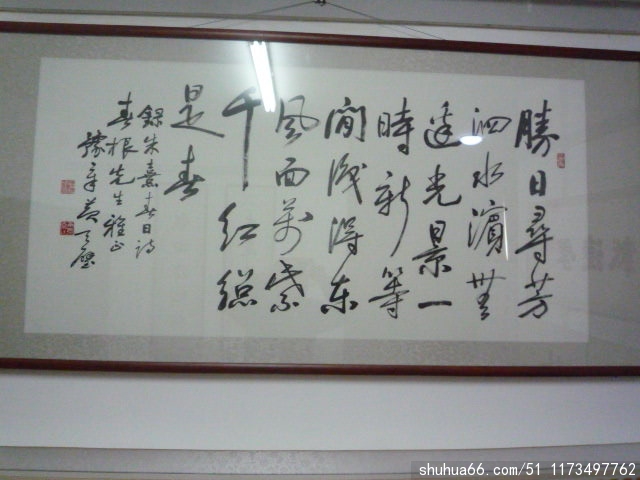 勝日尋芳
泗水濱無
邊光景一
時新等
閒識得東
風面萬紫
千紅總
是春
錄朱熹春日詩
春根先生雅正
豫章黃天
shuhua66.com/51 1173497762